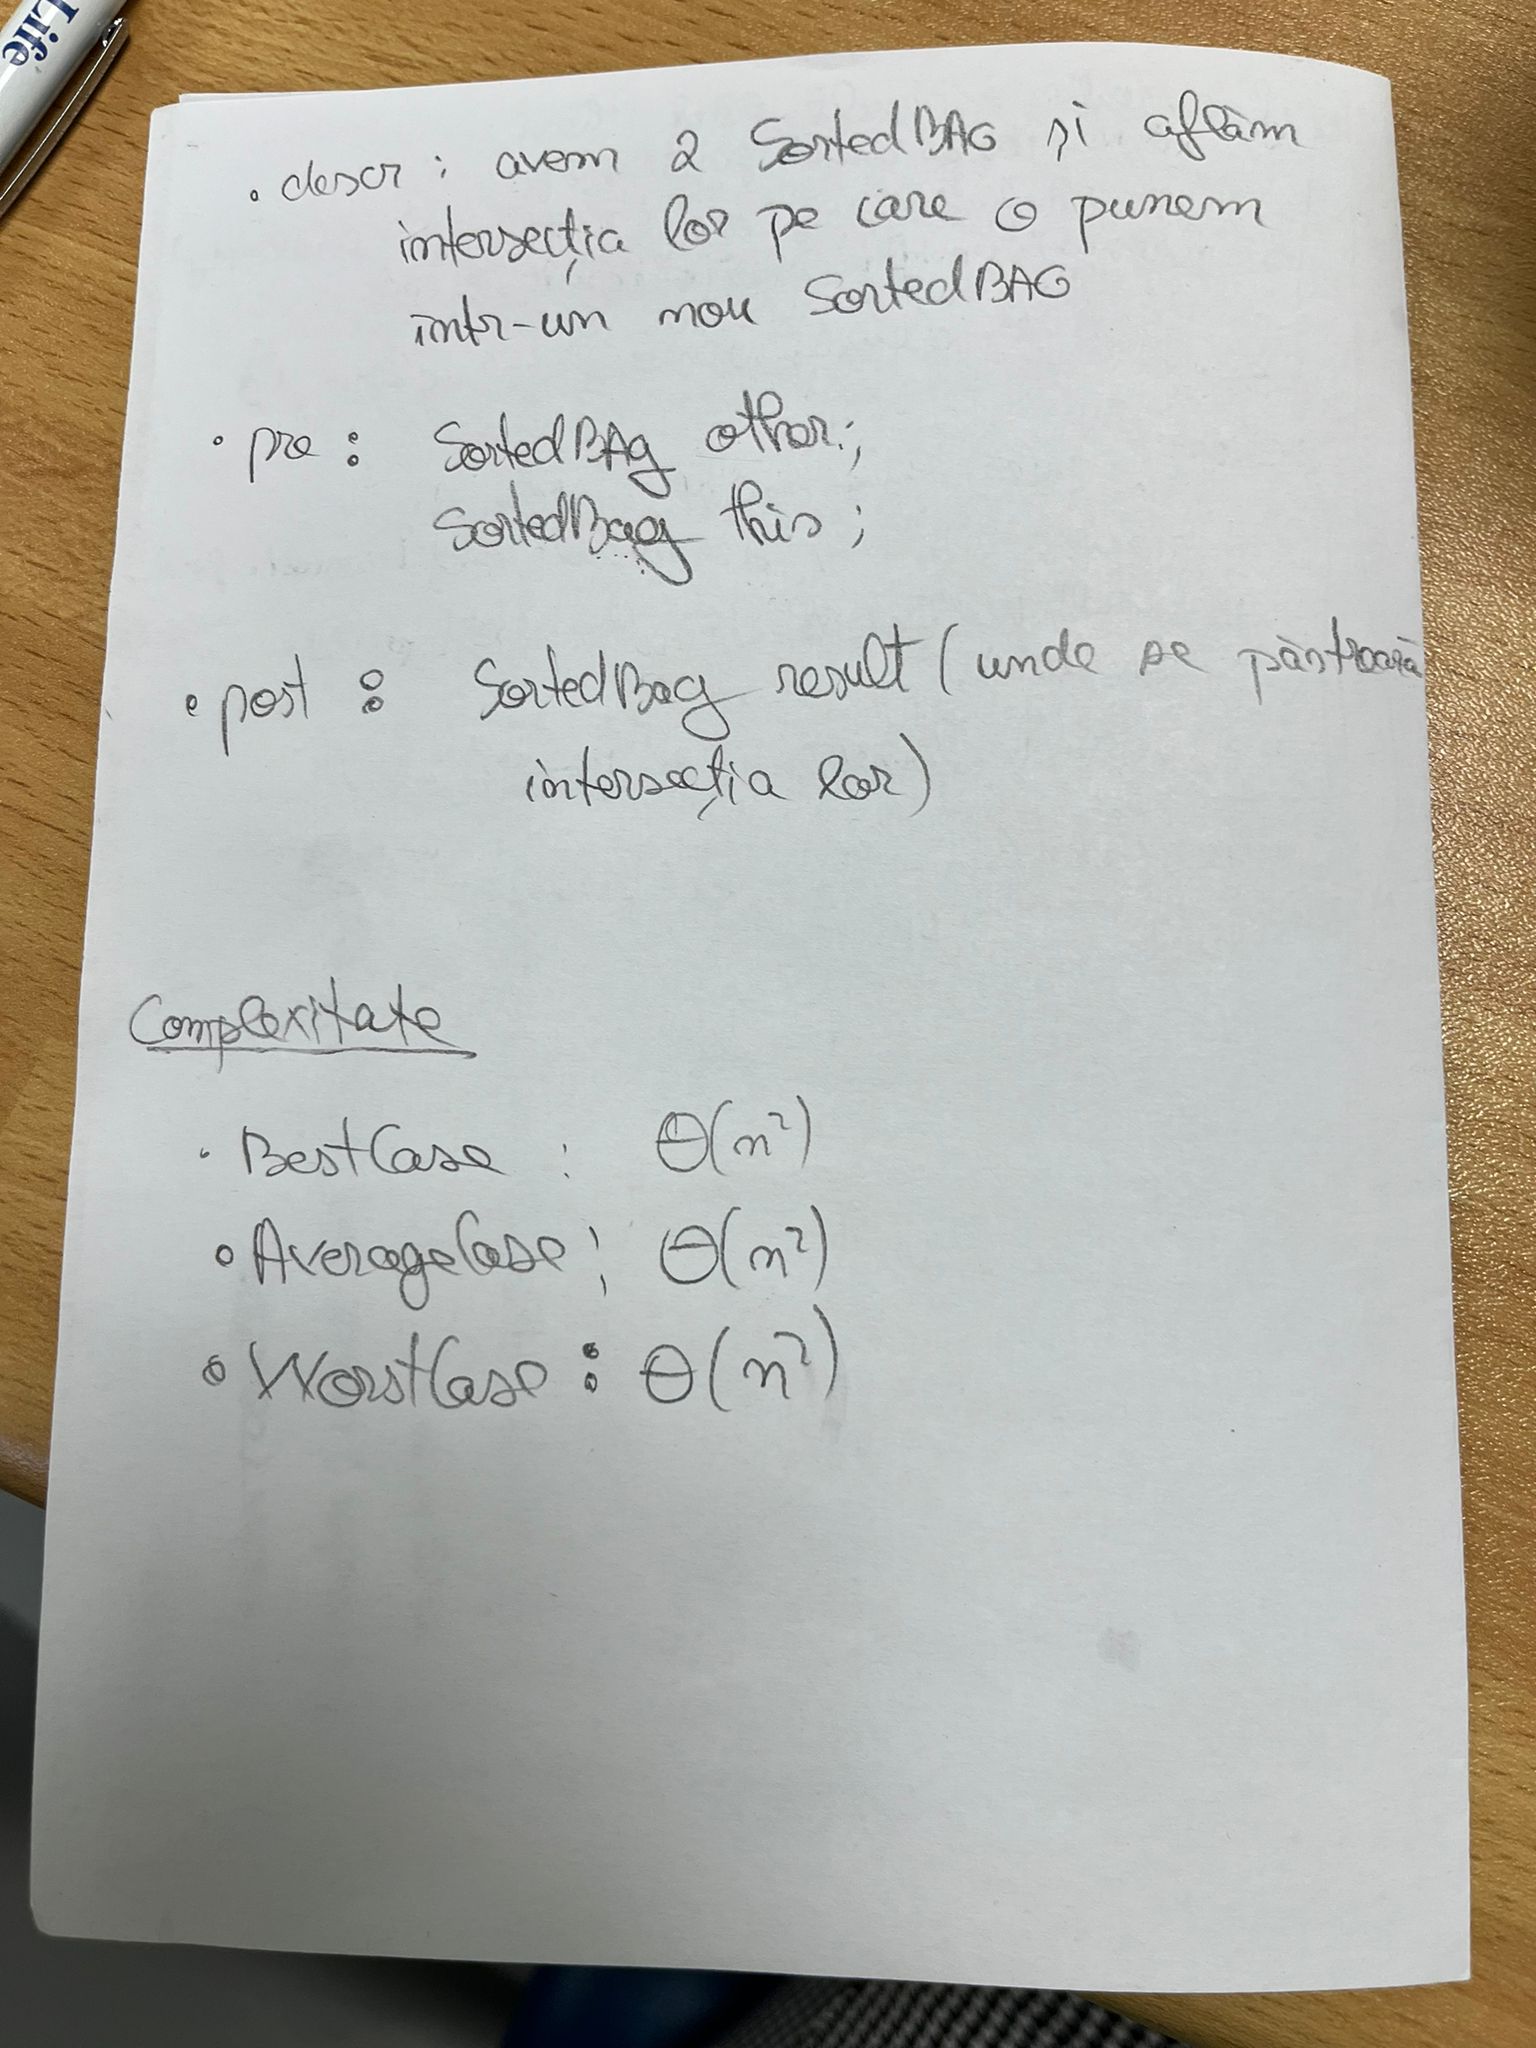 Life
• descr : avem 2 SortedBAG și aflăm
intersecția lor pe care o punem
într-un nou SortedBAG
• pre : SortedBAg other;
SortedBag this ;
• post : SortedBag result (unde se păstrează
intersecția lor)
Complexitate
• BestCase : Θ(n²)
• AverageCase : Θ(n²)
• WorstCase : Θ(n²)